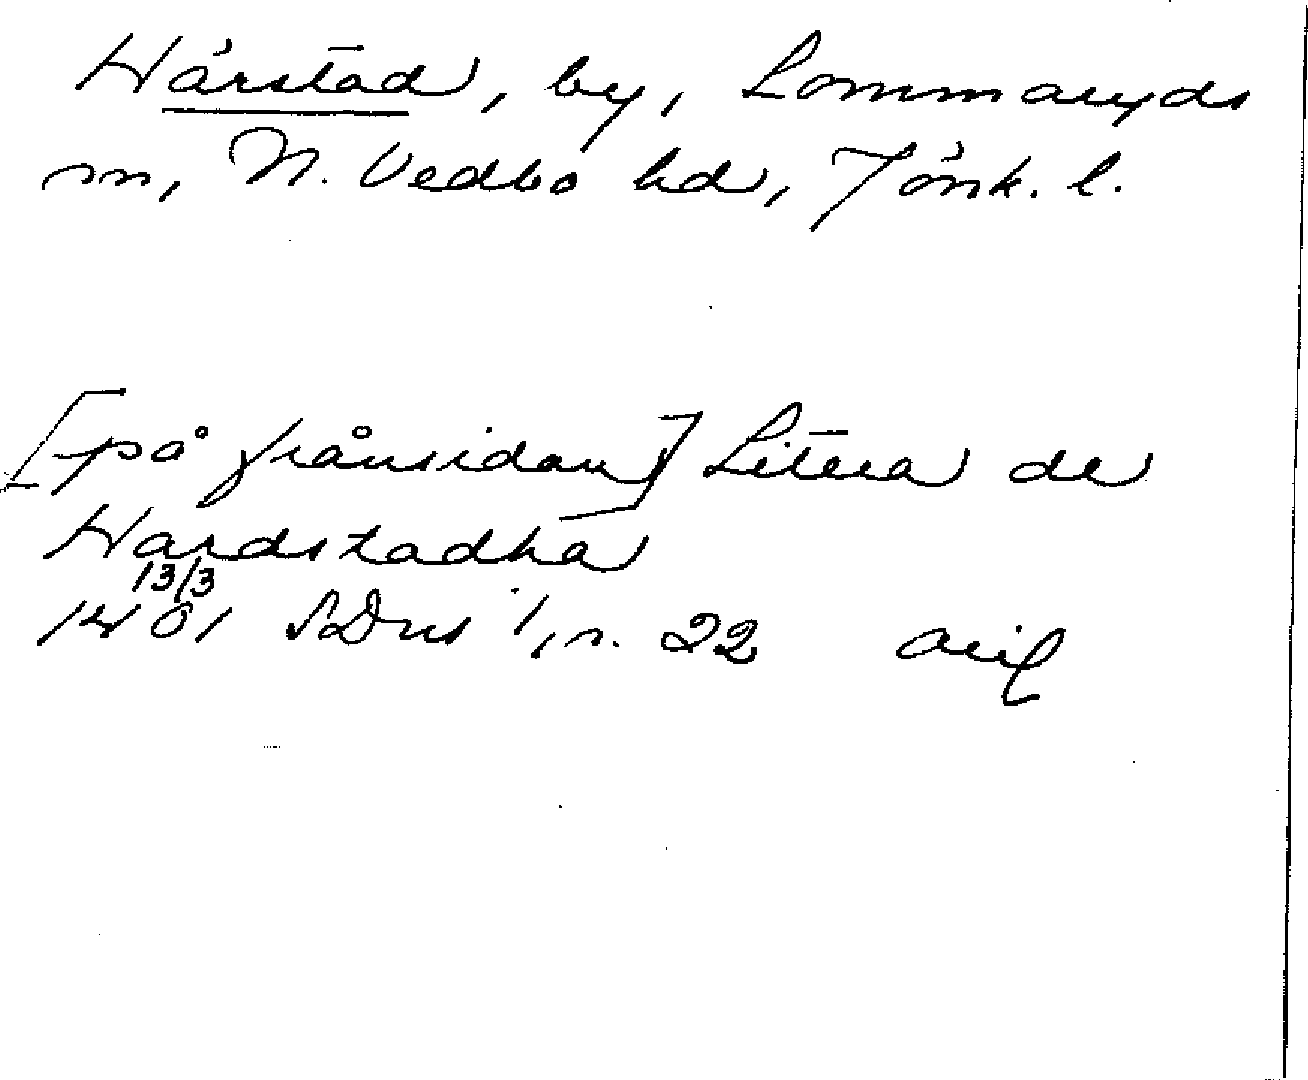 Hårstad, by, Lommaryds
sn, N. Vedbo hd, Jönk. l.
[på frånsidan] Litera de
Hardstadha
13/3
1401 SDns 1, s. 22 orig